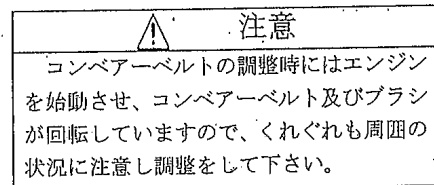 注意
コンベアーベルトの調整時にはエンジン
を始動させ、コンベアーベルト及びブラシ
が回転していますので、くれぐれも周囲の
状況に注意し調整をして下さい。